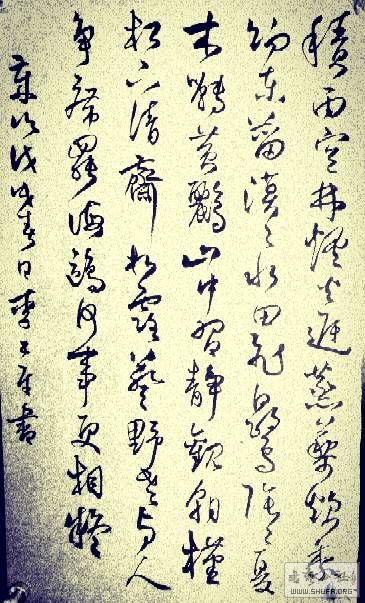 積雨空林煙火遲蒸藜炊黍
餉東菑漠々水田飛白鷺陰々夏
木囀黃鸝山中習靜觀朝槿
松下清齋折露葵野老与人
爭席罷海鷗何事更相疑
春日李書
WWW.SHUFA.ORG